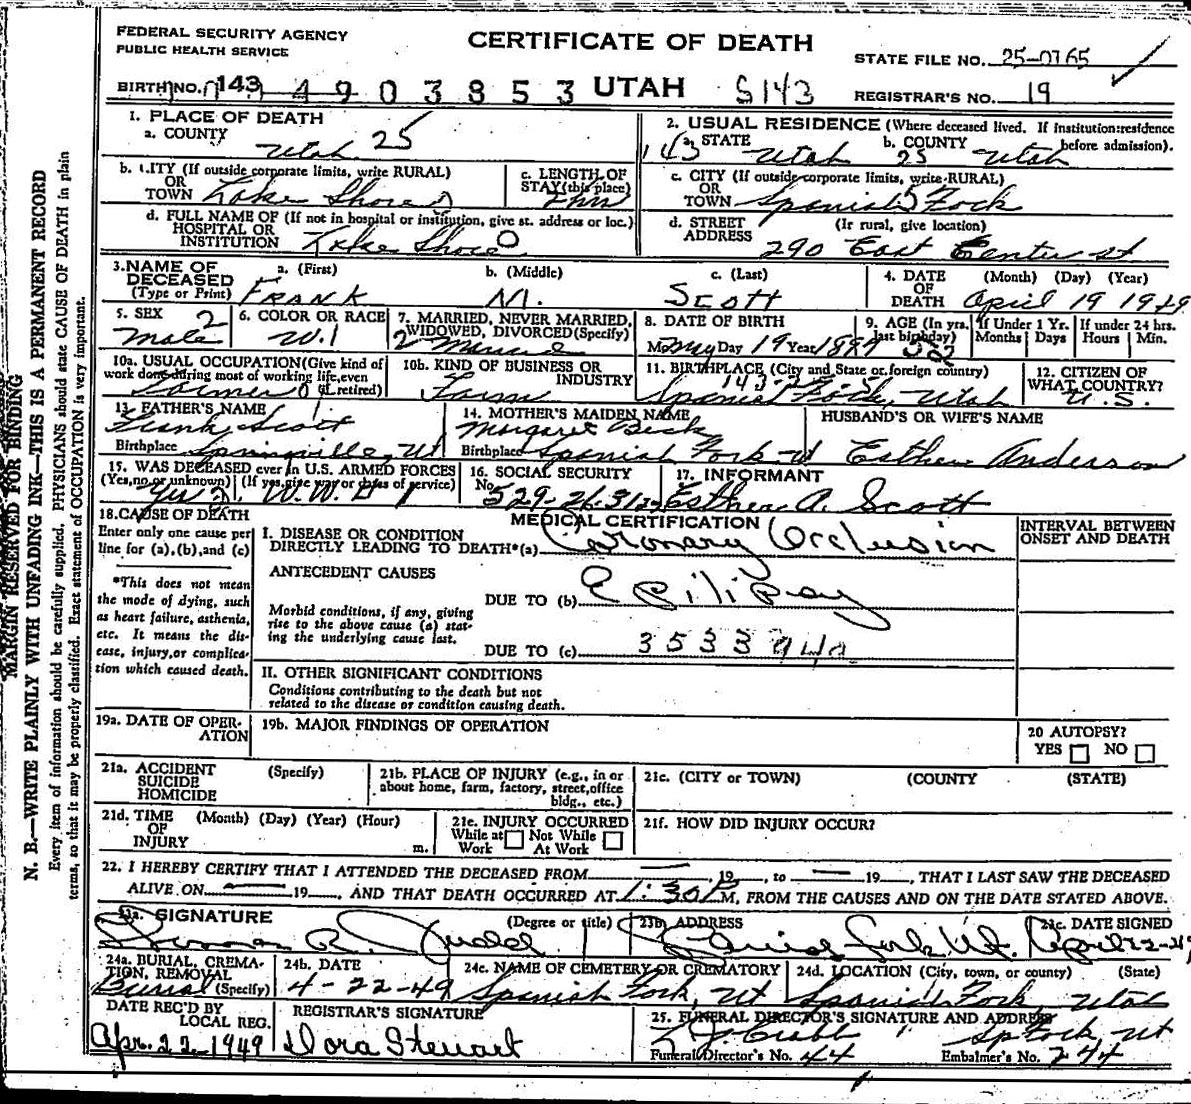 FEDERAL SECURITY AGENCY
PUBLIC HEALTH SERVICE
CERTIFICATE OF DEATH
STATE FILE NO. 25-0765
BIRTH NO. 143 4903853 UTAH S143
REGISTRAR'S NO. 19
1. PLACE OF DEATH
a. COUNTY Utah 25
2. USUAL RESIDENCE (Where deceased lived. If institution: residence before admission).
143 a. STATE Utah 25 b. COUNTY Utah
b. CITY (If outside corporate limits, write RURAL)
OR
TOWN Lake Shore
c. LENGTH OF
STAY (this place)
c. CITY (If outside corporate limits, write RURAL)
OR
TOWN Spanish Fork
d. FULL NAME OF (If not in hospital or institution, give st. address or loc.)
HOSPITAL OR
INSTITUTION Lake Shore
d. STREET (If rural, give location)
ADDRESS 290 East Center st
3. NAME OF DECEASED (Type or Print)
a. (First) FRANK
b. (Middle) M.
c. (Last) SCOTT
4. DATE OF DEATH (Month) (Day) (Year)
April 19 1949
5. SEX
Male 2
6. COLOR OR RACE
W. 1
7. MARRIED, NEVER MARRIED,
WIDOWED, DIVORCED (Specify)
2
8. DATE OF BIRTH
Mo. May Day 19 Year
9. AGE (In yrs. last birthday)
If Under 1 Yr. Months Days
If under 24 hrs. Hours Min.
10a. USUAL OCCUPATION (Give kind of
work done during most of working life, even
if retired) Farmer
10b. KIND OF BUSINESS OR
INDUSTRY
Farm
11. BIRTHPLACE (City and State or foreign country)
143-25
Spanish Fork, Utah
12. CITIZEN OF
WHAT COUNTRY?
U.S.
13. FATHER'S NAME
Frank Scott
Birthplace Springville, Ut
14. MOTHER'S MAIDEN NAME
Margaret Beck
Birthplace Spanish Fork Ut
HUSBAND'S OR WIFE'S NAME
Esther Anderson
15. WAS DECEASED ever in U.S. ARMED FORCES
(Yes, no, or unknown) (If yes, give war or dates of service)
Yes 2 W.W. 1
16. SOCIAL SECURITY
No. 529-26-
17. INFORMANT
Esther A. Scott
18. CAUSE OF DEATH
Enter only one cause per
line for (a), (b), and (c)
*This does not mean
the mode of dying, such
as heart failure, asthenia,
etc. It means the dis-
ease, injury, or complica-
tion which caused death.
MEDICAL CERTIFICATION
INTERVAL BETWEEN
ONSET AND DEATH
I. DISEASE OR CONDITION
DIRECTLY LEADING TO DEATH*(a) Coronary Occlusion
ANTECEDENT CAUSES
DUE TO (b) Epilipsy
Morbid conditions, if any, giving
rise to the above cause (a) stat-
ing the underlying cause last.
DUE TO (c) 3533
II. OTHER SIGNIFICANT CONDITIONS
Conditions contributing to the death but not
related to the disease or condition causing death.
19a. DATE OF OPER-
ATION
19b. MAJOR FINDINGS OF OPERATION
20 AUTOPSY?
YES NO
21a. ACCIDENT (Specify)
SUICIDE
HOMICIDE
21b. PLACE OF INJURY (e.g., in or
about home, farm, factory, street, office
bldg., etc.)
21c. (CITY or TOWN) (COUNTY) (STATE)
21d. TIME (Month) (Day) (Year) (Hour)
OF
INJURY m.
21e. INJURY OCCURRED
While at Work Not While At Work
21f. HOW DID INJURY OCCUR?
22. I HEREBY CERTIFY THAT I ATTENDED THE DECEASED FROM , 19 , to 19 , THAT I LAST SAW THE DECEASED
ALIVE ON 19 , AND THAT DEATH OCCURRED AT 1:30 P M, FROM THE CAUSES AND ON THE DATE STATED ABOVE.
23a. SIGNATURE (Degree or title)
23b. ADDRESS
Spanish Fork Ut.
23c. DATE SIGNED
24a. BURIAL, CREMA-
TION, REMOVAL
Burial (Specify)
24b. DATE
4-22-49
24c. NAME OF CEMETERY OR CREMATORY
Spanish Fork, Ut
24d. LOCATION (City, town, or county) (State)
Spanish Fork, Utah
DATE REC'D BY
LOCAL REG.
Apr. 22, 1949
REGISTRAR'S SIGNATURE
Dora Stewart
25. FUNERAL DIRECTOR'S SIGNATURE AND ADDRESS
Sp Fork, Ut
Funeral Director's No. 44 Embalmer's No. 244
MARGIN RESERVED FOR BINDING
N. B.—WRITE PLAINLY WITH UNFADING INK—THIS IS A PERMANENT RECORD
Every item of information should be carefully supplied. PHYSICIANS should state CAUSE OF DEATH in plain
terms, so that it may be properly classified. Exact statement of OCCUPATION is very important.